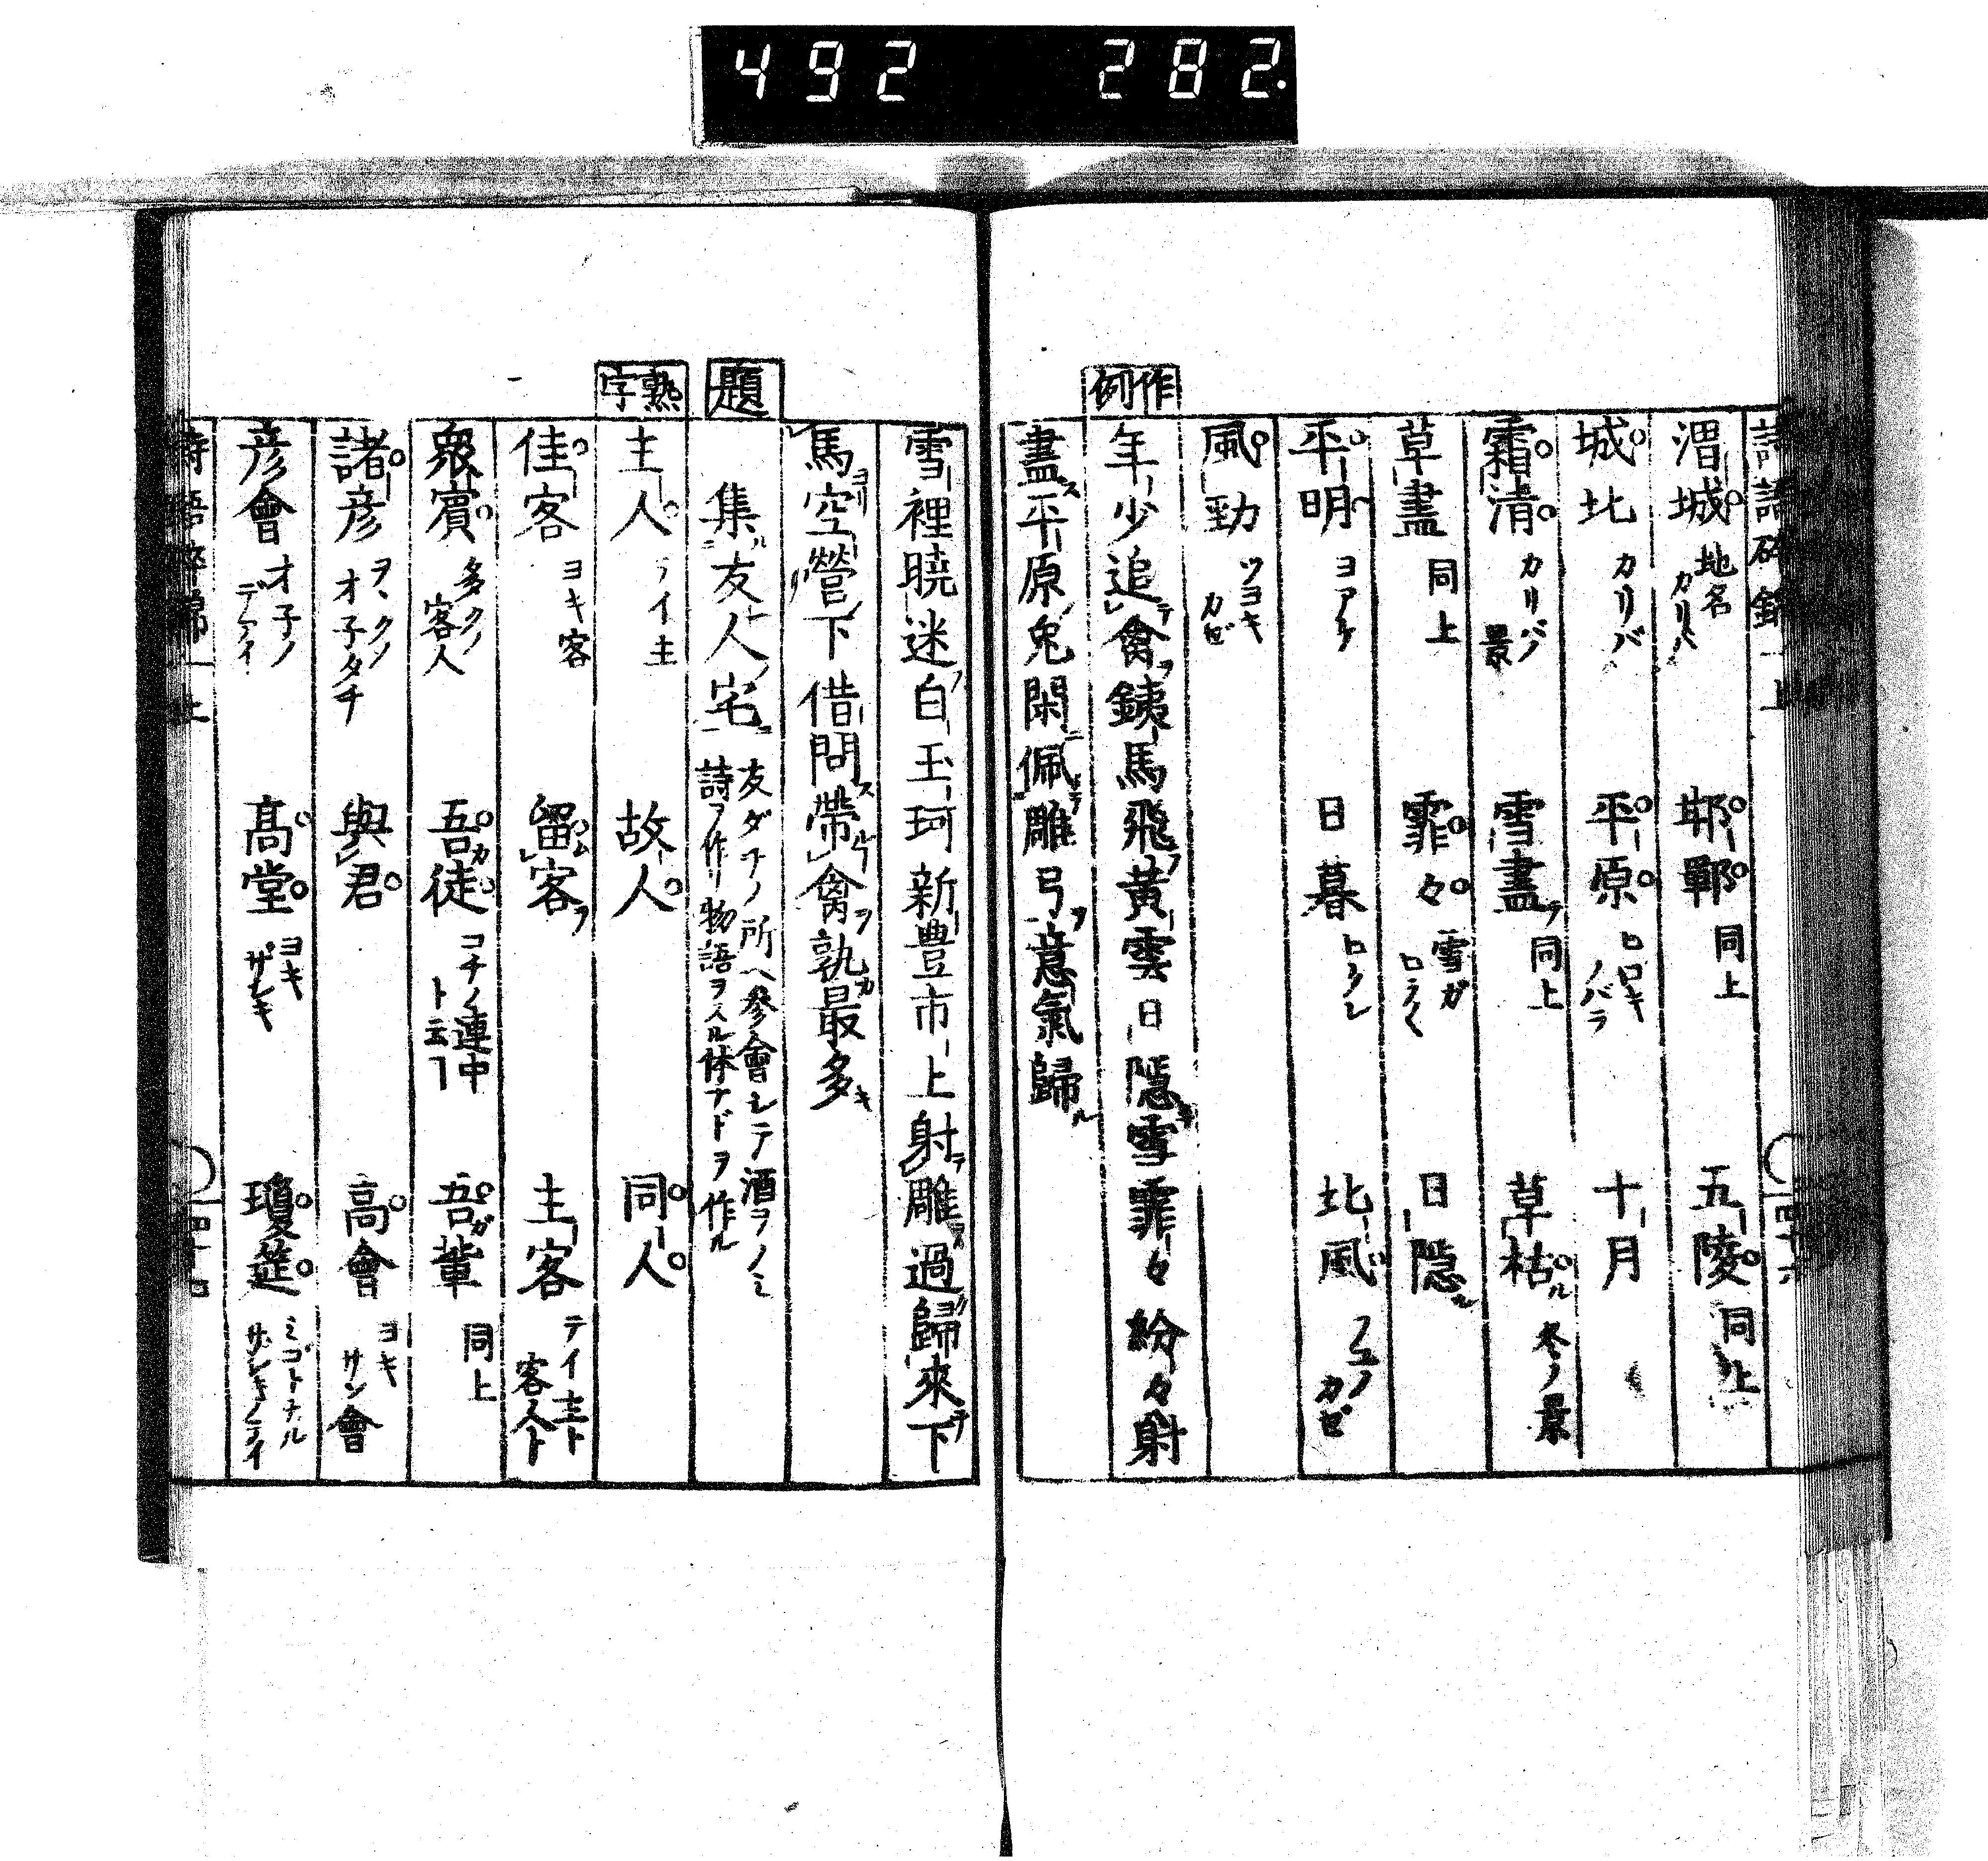 492 282.
渭城 地名 カリバ 邯鄲 同上 五陵 同上
城北 カリバ 平原 ヒロキ ノバラ 十月
霜清 カリバノ 景 雪盡テ 同上 草枯ル 冬ノ景
草盡 同上 霏々 雪ガ 日隠ル
平明 ヨアケ 日暮 ヒクレ 北風 フユノ カゼ
風勁 ツヨキ カゼ
作例
年少追テ禽ヲ鉄馬飛フ黄雲日隠雪霏々紛々射
盡ス平原ノ兎閑ニ佩テ雕弓ヲ意氣歸ル
雪裡曉迷フ白玉珂新豊市上射テ雕過歸來下テ
馬空營ノ下借問ス帶禽ヲ孰カ最多キ
題
集ル友人ノ宅ニ 友ダチノ所ヘ參會シテ酒ヲノミ 詩ヲ作リ物語ヲスル体ナドヲ作ル
熟字
主人 テイ主 故人 同人
佳客 ヨキ客 留ム客ヲ 主客 テイ主ト 客人ト
衆賓 多クノ 客人 吾カ徒 コチノ連中 ト云ヿ 吾ガ輩 同上
諸彦 ヲヽクノ 才子タチ 與君 高會 ヨキ サン會
彦會 才子ノ デアイ 高堂 ヨキ ザシキ 瓊筵 ミゴトナル ザシキノテイ